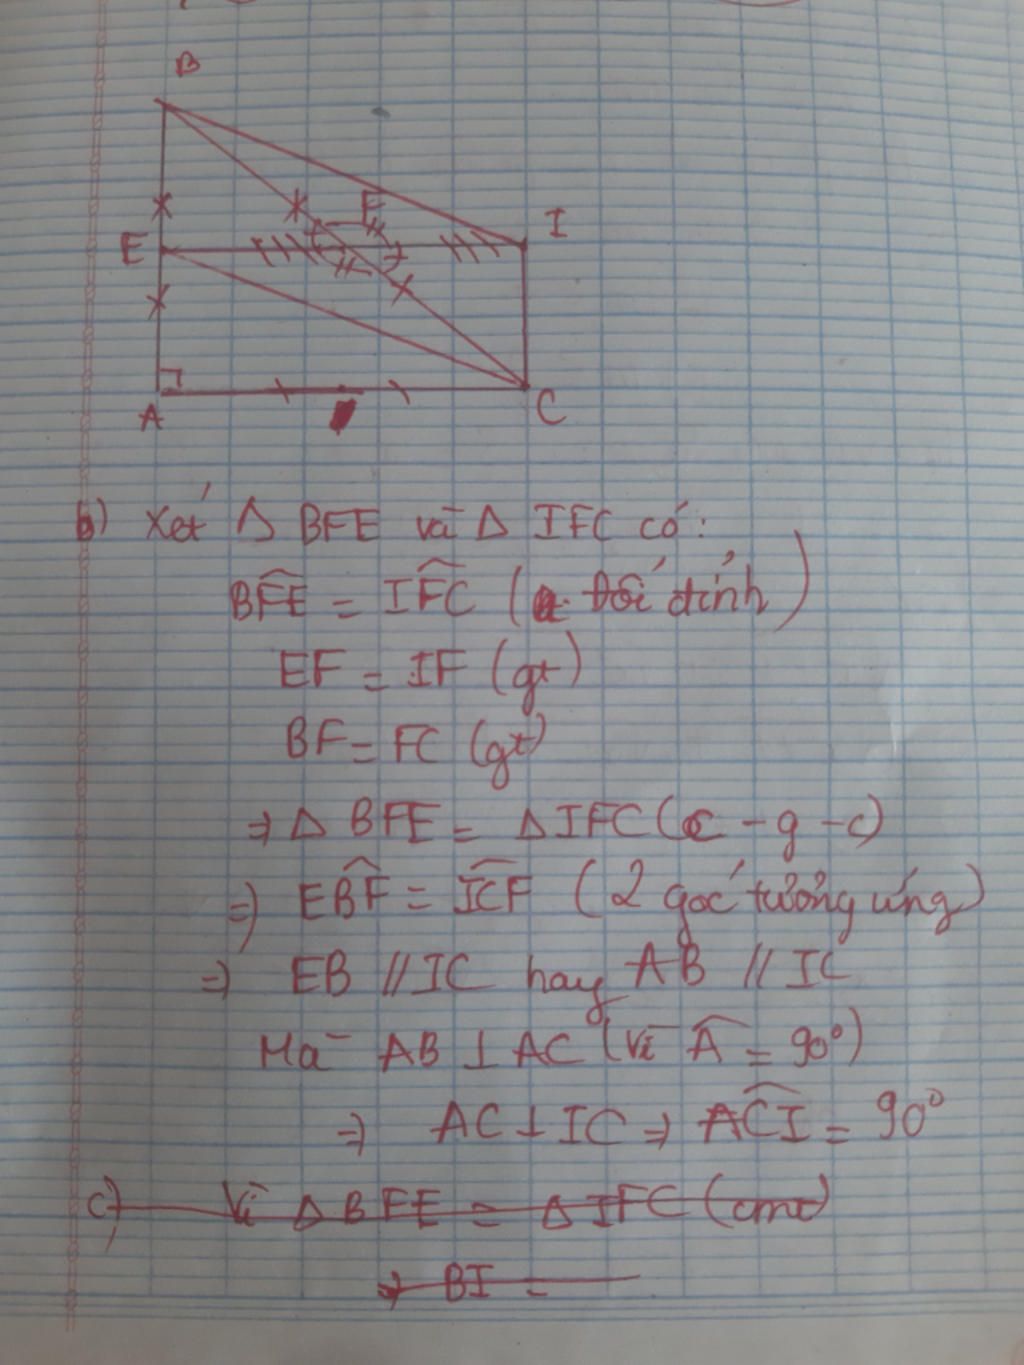 B
F
I
E
A
C
b) Xét Δ BFE và Δ IFC có:
BFE = IFC (đối đỉnh)
EF = IF (gt)
BF = FC (gt)
⇒ Δ BFE = Δ IFC (c - g - c)
⇒ EBF = ICF (2 góc tưởng ứng)
⇒ EB // IC hay AB // IC
Mà AB ⊥ AC (vì Â = 90°)
⇒ AC ⊥ IC ⇒ ACI = 90°
c) Vì Δ BFE = Δ IFC (cmt)
⇒ BI =